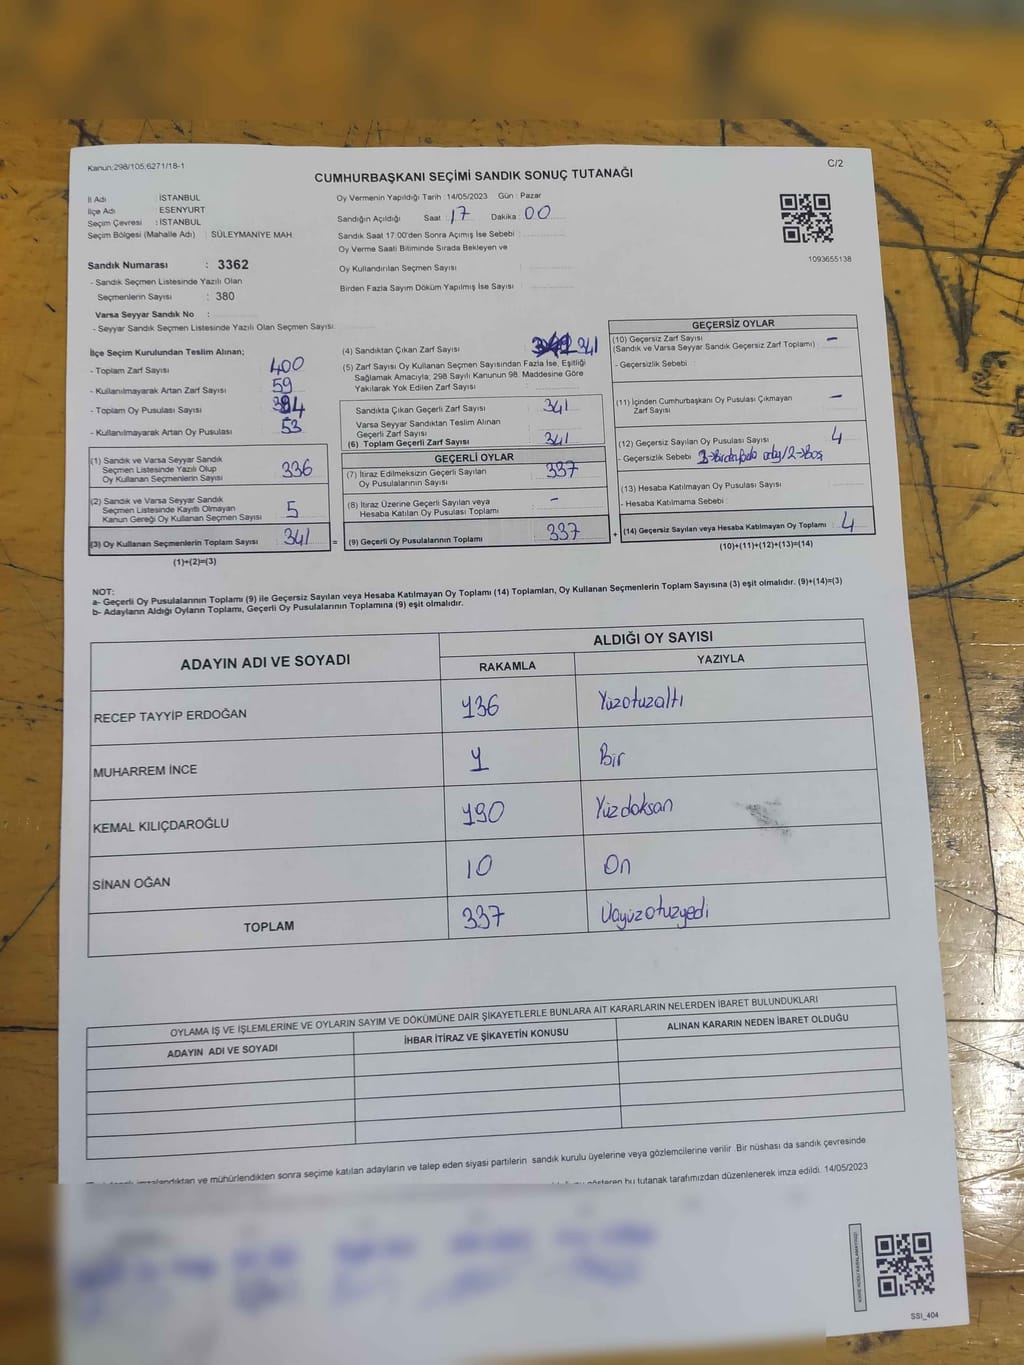 Kanun;298/105;6271/18-1
C/2
CUMHURBAŞKANI SEÇİMİ SANDIK SONUÇ TUTANAĞI
İl Adı : İSTANBUL
İlçe Adı : ESENYURT
Seçim Çevresi : İSTANBUL
Seçim Bölgesi (Mahalle Adı) : SÜLEYMANİYE MAH.
Sandık Numarası : 3362
- Sandık Seçmen Listesinde Yazılı Olan
Seçmenlerin Sayısı : 380
Varsa Seyyar Sandık No :
- Seyyar Sandık Seçmen Listesinde Yazılı Olan Seçmen Sayısı:
Oy Vermenin Yapıldığı Tarih : 14/05/2023 Gün : Pazar
Sandığın Açıldığı Saat : 17 Dakika : 00
Sandık Saat 17:00'den Sonra Açımış İse Sebebi :
Oy Verme Saati Bitiminde Sırada Bekleyen ve
Oy Kullandırılan Seçmen Sayısı :
Birden Fazla Sayım Döküm Yapılmış İse Sayısı :
1093655138
İlçe Seçim Kurulundan Teslim Alınan;
- Toplam Zarf Sayısı : 400
- Kullanılmayarak Artan Zarf Sayısı : 59
- Toplam Oy Pusulası Sayısı :
- Kullanılmayarak Artan Oy Pusulası : 53
(1) Sandık ve Varsa Seyyar Sandık
Seçmen Listesinde Yazılı Olup
Oy Kullanan Seçmenlerin Sayısı 336
(2) Sandık ve Varsa Seyyar Sandık
Seçmen Listesinde Kayıtlı Olmayan
Kanun Gereği Oy Kullanan Seçmen Sayısı 5
(3) Oy Kullanan Seçmenlerin Toplam Sayısı 341 =
(1)+(2)=(3)
(4) Sandıktan Çıkan Zarf Sayısı 341
(5) Zarf Sayısı Oy Kullanan Seçmen Sayısından Fazla İse, Eşitliği
Sağlamak Amacıyla; 298 Sayılı Kanunun 98. Maddesine Göre
Yakılarak Yok Edilen Zarf Sayısı :
Sandıkta Çıkan Geçerli Zarf Sayısı 341
Varsa Seyyar Sandıktan Teslim Alınan
Geçerli Zarf Sayısı
(6) Toplam Geçerli Zarf Sayısı 341
GEÇERLİ OYLAR
(7) İtiraz Edilmeksizin Geçerli Sayılan
Oy Pusulasının Sayısı 337
(8) İtiraz Üzerine Geçerli Sayılan veya
Hesaba Katılan Oy Pusulası Toplamı -
(9) Geçerli Oy Pusulalarının Toplamı 337 +
GEÇERSİZ OYLAR
(10) Geçersiz Zarf Sayısı
(Sandık ve Varsa Seyyar Sandık Geçersiz Zarf Toplamı) -
- Geçersizlik Sebebi :
(11) İçinden Cumhurbaşkanı Oy Pusulası Çıkmayan
Zarf Sayısı -
(12) Geçersiz Sayılan Oy Pusulası Sayısı 4
- Geçersizlik Sebebi / 2->Boş
(13) Hesaba Katılmayan Oy Pusulası Sayısı
- Hesaba Katılmama Sebebi :
(14) Geçersiz Sayılan veya Hesaba Katılmayan Oy Toplamı 4
(10)+(11)+(12)+(13)=(14)
NOT:
a- Geçerli Oy Pusulalarının Toplamı (9) ile Geçersiz Sayılan veya Hesaba Katılmayan Oy Toplamı (14) Toplamları, Oy Kullanan Seçmenlerin Toplam Sayısına (3) eşit olmalıdır. (9)+(14)=(3)
b- Adayların Aldığı Oyların Toplamı, Geçerli Oy Pusulalarının Toplamına (9) eşit olmalıdır.
ADAYIN ADI VE SOYADI
ALDIĞI OY SAYISI
RAKAMLA YAZIYLA
RECEP TAYYİP ERDOĞAN 136 Yüzotuzaltı
MUHARREM İNCE 1 Bir
KEMAL KILIÇDAROĞLU 190 Yüzdoksan
SİNAN OĞAN 10 On
TOPLAM 337 Üçyüzotuzyedi
OYLAMA İŞ VE İŞLEMLERİNE VE OYLARIN SAYIM VE DÖKÜMÜNE DAİR ŞİKAYETLERLE BUNLARA AİT KARARLARIN NELERDEN İBARET BULUNDUKLARI
ADAYIN ADI VE SOYADI İHBAR İTİRAZ VE ŞİKAYETİN KONUSU ALINAN KARARIN NEDEN İBARET OLDUĞU
imzalandıktan ve mühürlendikten sonra seçime katılan adayların ve talep eden siyasi partilerin sandık kurulu üyelerine veya gözlemcilerine verilir. Bir nüshası da sandık çevresinde
gösteren bu tutanak tarafımızdan düzenlenerek imza edildi. 14/05/2023
SSI_404